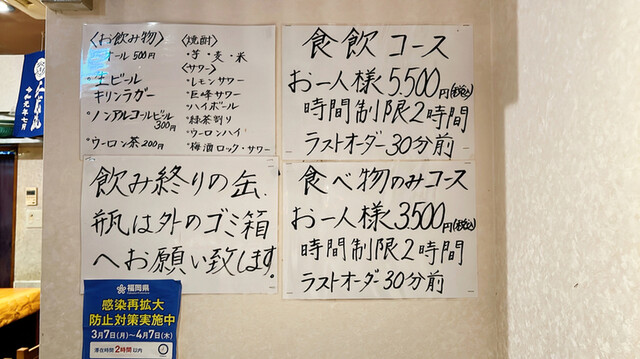 〈お飲み物〉
オール500円
・生ビール
キリンラガー
・ノンアルコールビール
300円
・ウーロン茶200円
〈焼酎〉
・芋・麦・米
〈サワー〉
・レモンサワー
・巨峰サワー
・ハイボール
・緑茶割り
・ウーロンハイ
・梅酒ロック・サワー
食飲コース
お一人様5,500円(税込)
時間制限2時間
ラストオーダー30分前
飲み終りの缶、
瓶は外のゴミ箱
へお願い致します。
食べ物のみコース
お一人様3,500円(税込)
時間制限2時間
ラストオーダー30分前
福岡県
感染再拡大
防止対策実施中
3月7日(月)〜4月7日(木)
滞在時間2時間以内
令和元年七月